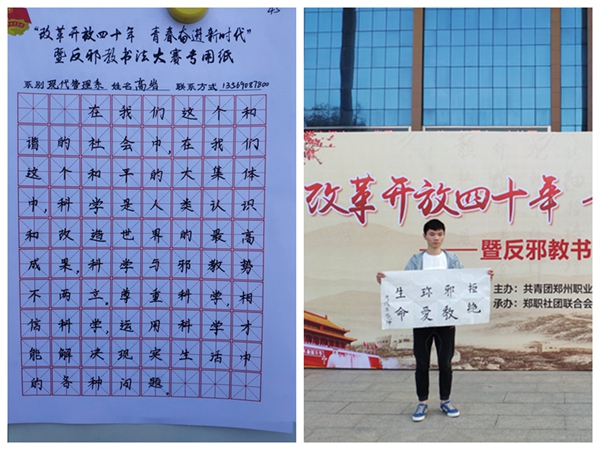 “改革开放四十年 青春奋进新时代”
暨反邪教书法大赛专用纸
系别 现代管理系 姓名 高岩 联系方式 13569087800
在我们这个和
谐的社会中,在我们
这个和平的大集体
中,科学是人类认识
和改造世界的最高
成果,科学与邪教势
不两立。尊重科学,相
信科学,运用科学才
能解决现实生活中
的各种问题。
改革开放四十年
——暨反邪教书
主办：共青团郑州职业
承办：郑职社团联合会
拒绝
邪教
珍爱
生命